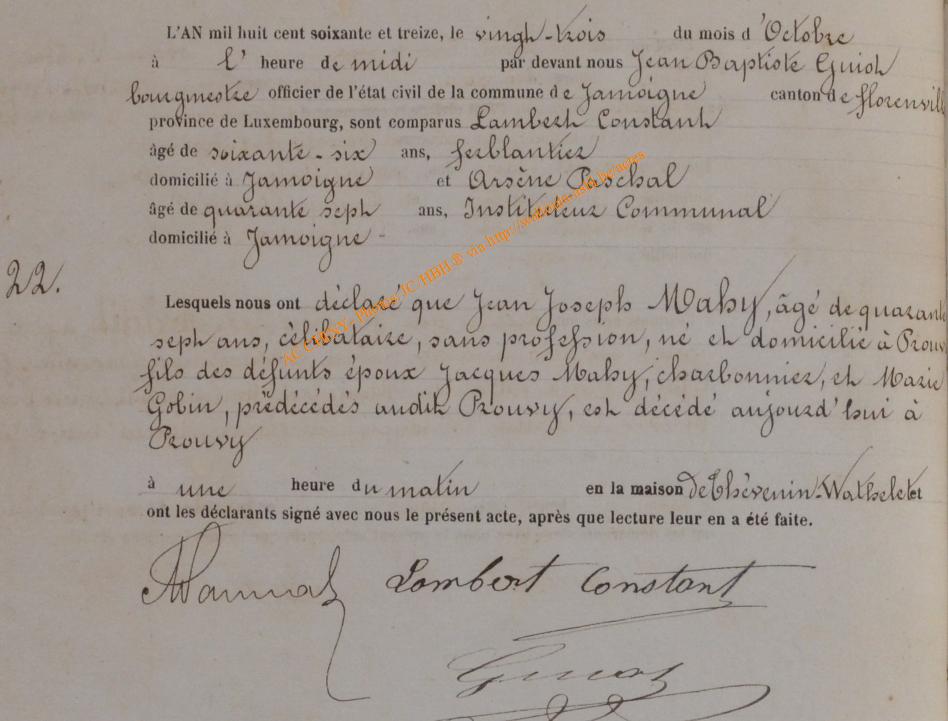 L'AN mil huit cent soixante et treize, le vingt-trois du mois d'Octobre
à l' heure de midi par devant nous Jean Baptiste Guiot
bourgmestre officier de l'état civil de la commune de Jamoigne canton de Florenvill
province de Luxembourg, sont comparus Lambert Constant
âgé de soixante-six ans, ferblantier
domicilié à Jamoigne et Arsène Paschal
âgé de quarante sept ans, Instituteur Communal
domicilié à Jamoigne -
22.
Lesquels nous ont déclaré que Jean Joseph Mahy, âgé de quarante
sept ans, célibataire, sans profession, né et domicilié à Prouvy
fils des défunts époux Jacques Mahy, charbonnier, et Marie
Gobin, prédécédés audit Prouvy, est décédé aujourd'hui à
Prouvy
à une heure du matin en la maison de Thèvenin-Wathelet et
ont les déclarants signé avec nous le présent acte, après que lecture leur en a été faite.
Lambert Constant
Guiot